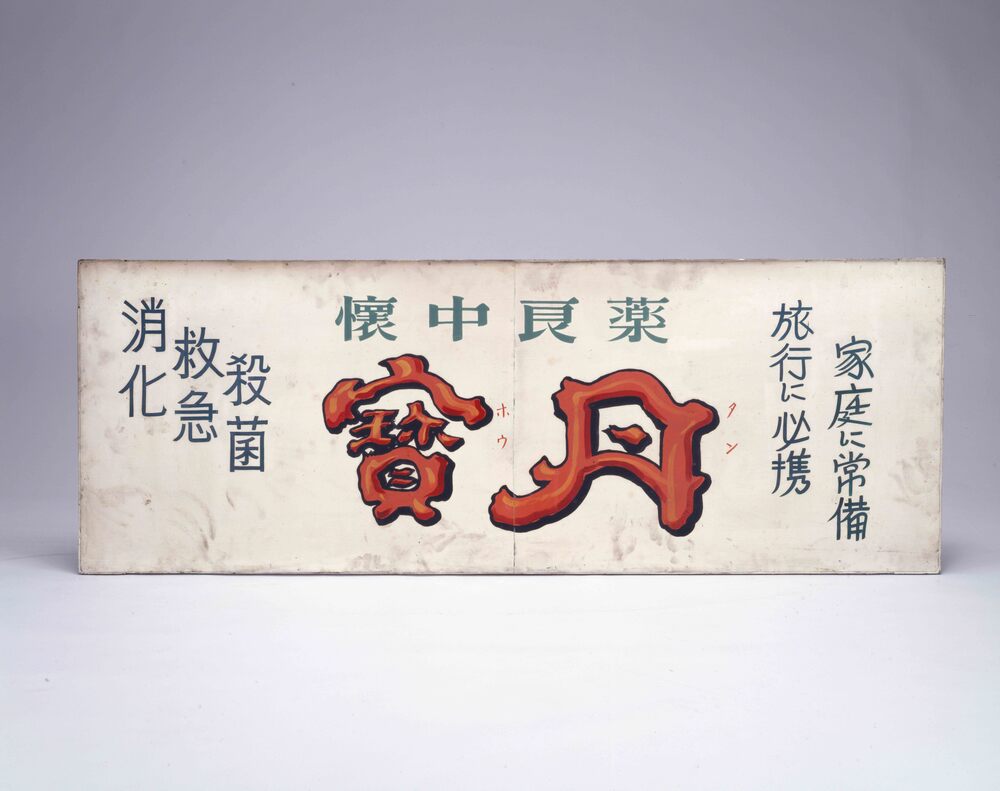 懷中良薬
寶丹
ホウ
タン
家庭に常備
旅行に必携
殺菌
救急
消化